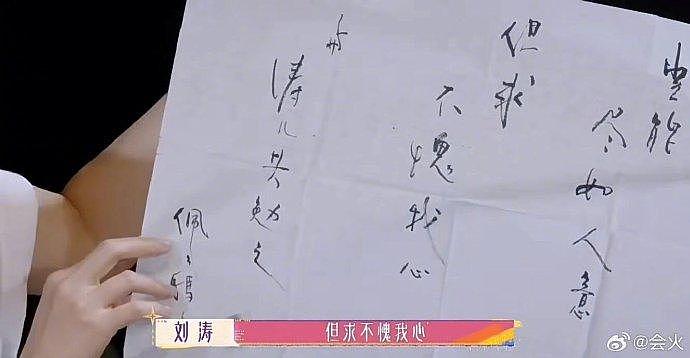 岂能
尽如人意
但求
不愧我心
与
涛儿共勉之
佩佩
刘涛
但求不愧我心
@会火